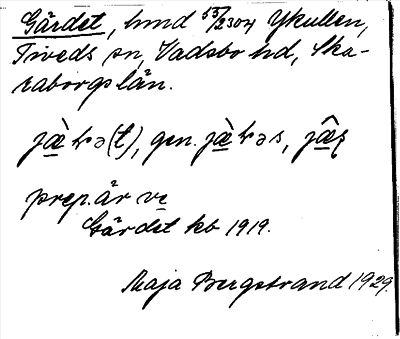 Gärdet, hmd 53/2304 Ykullen,
Tiveds sn, Vadsbo hd, Ska-
raborgs län.
prep. är ve
Gärdet kb 1919.
Maja Bergstrand 1929.